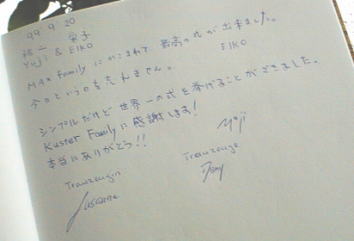 99 9. 20
裕二 栄子
Yuji & EIKO
Max Family にかこまれて 最高の式が出来ました。
今日という日を忘れません。
EIKO
シンプルだけど世界一の式を挙げることができました。
Kuster Family に感謝します!
本当にありがとう!!
Yuji
Trauzeugin
Trauzeuge
Susanne